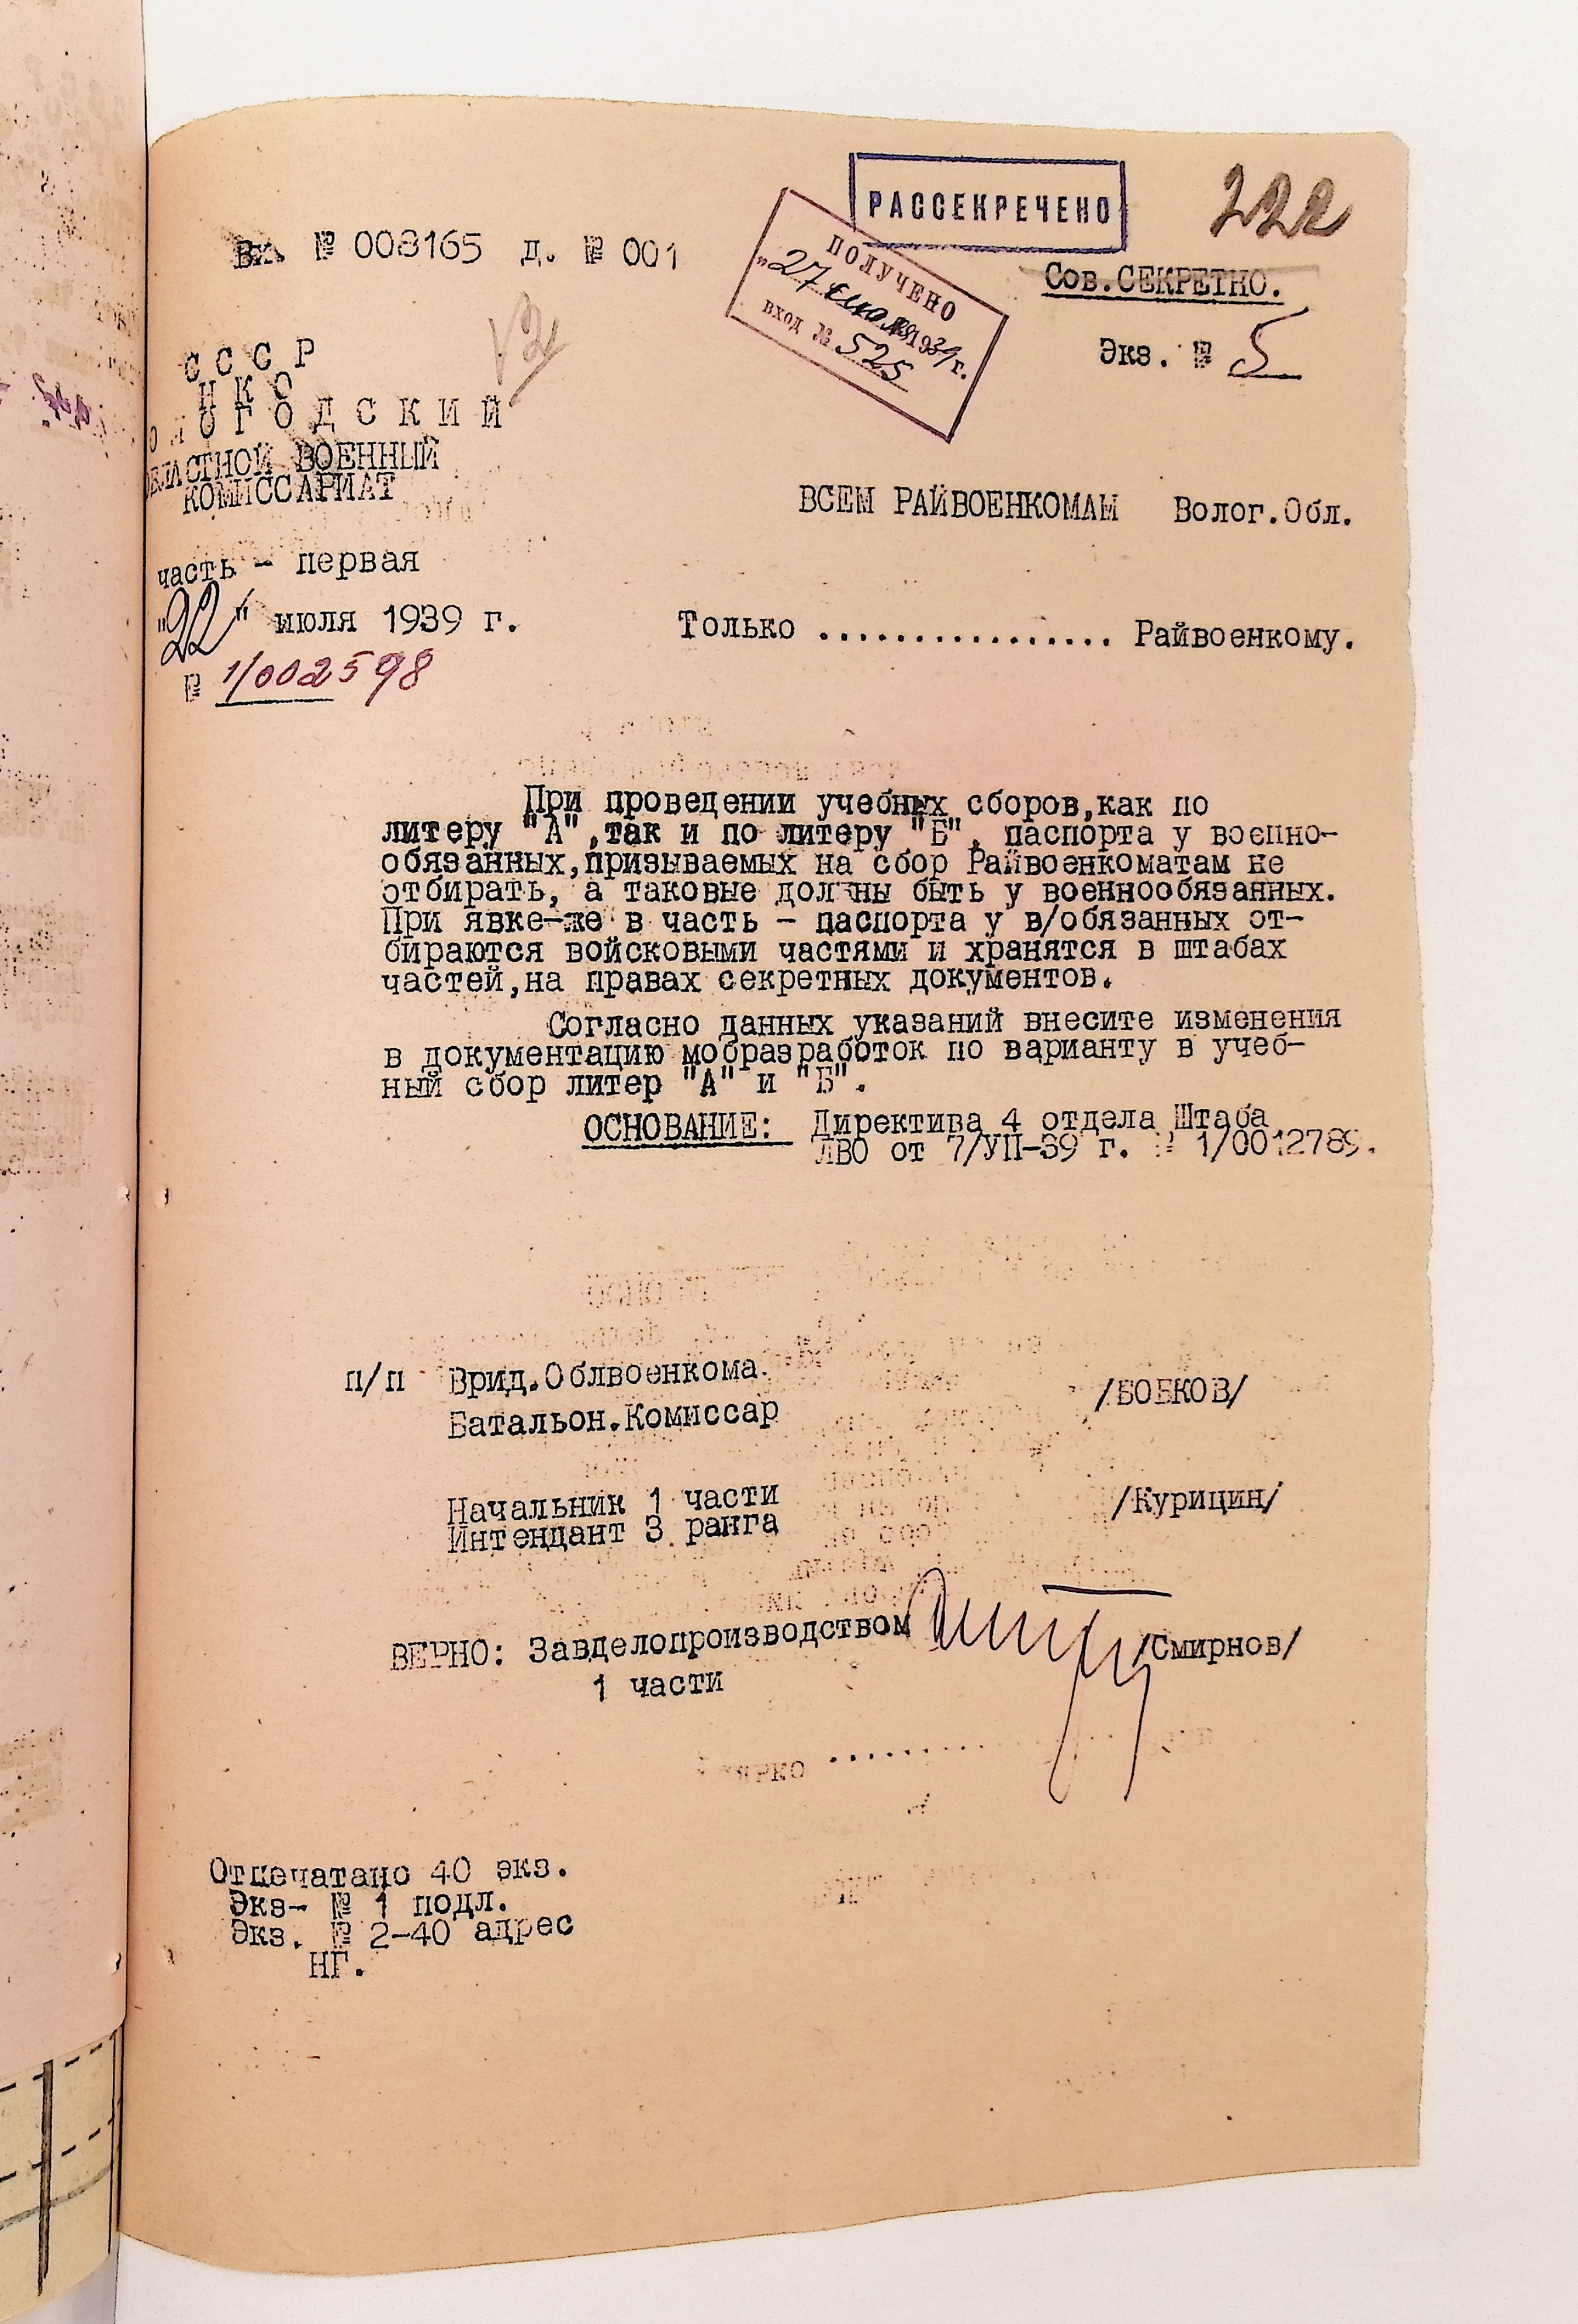 РАССЕКРЕЧЕНО
222
Вх № 008165 д. № 001
ПОЛУЧЕНО
"27" июля 1939 г.
ВХОД № 525
Сов.СЕКРЕТНО.
Экз. № 5
СССР
НКО
ОГОДСКИЙ
ОБЛАСТНОЙ ВОЕННЫЙ
КОМИССАРИАТ
ВСЕМ РАЙВОЕНКОМАМ Волог.Обл.
часть - первая
"22" июля 1939 г.
Только ................ Райвоенкому.
№ 1/002598
При проведении учебных сборов,как по
литеру "А",так и по литеру "Б", паспорта у военно-
обязанных,призываемых на сбор Райвоенкоматам не
отбирать, а таковые должны быть у военнообязанных.
При явке-же в часть - паспорта у в/обязанных от-
бираются войсковыми частями и хранятся в штабах
частей,на правах секретных документов.
Согласно данных указаний внесите изменения
в документацию мобразработок по варианту в учеб-
ный сбор литер "А" и "Б".
ОСНОВАНИЕ: Директива 4 отдела Штаба
ЛВО от 7/УП-39 г. № 1/0012789.
п/п Врид.Облвоенкома
Батальон.Комиссар /БОБКОВ/
Начальник 1 части
Интендант 3 ранга /Курицин/
ВЕРНО: Завделопроизводством /Смирнов/
1 части
Отпечатано 40 экз.
Экз- № 1 подл.
Экз. № 2-40 адрес
НГ.